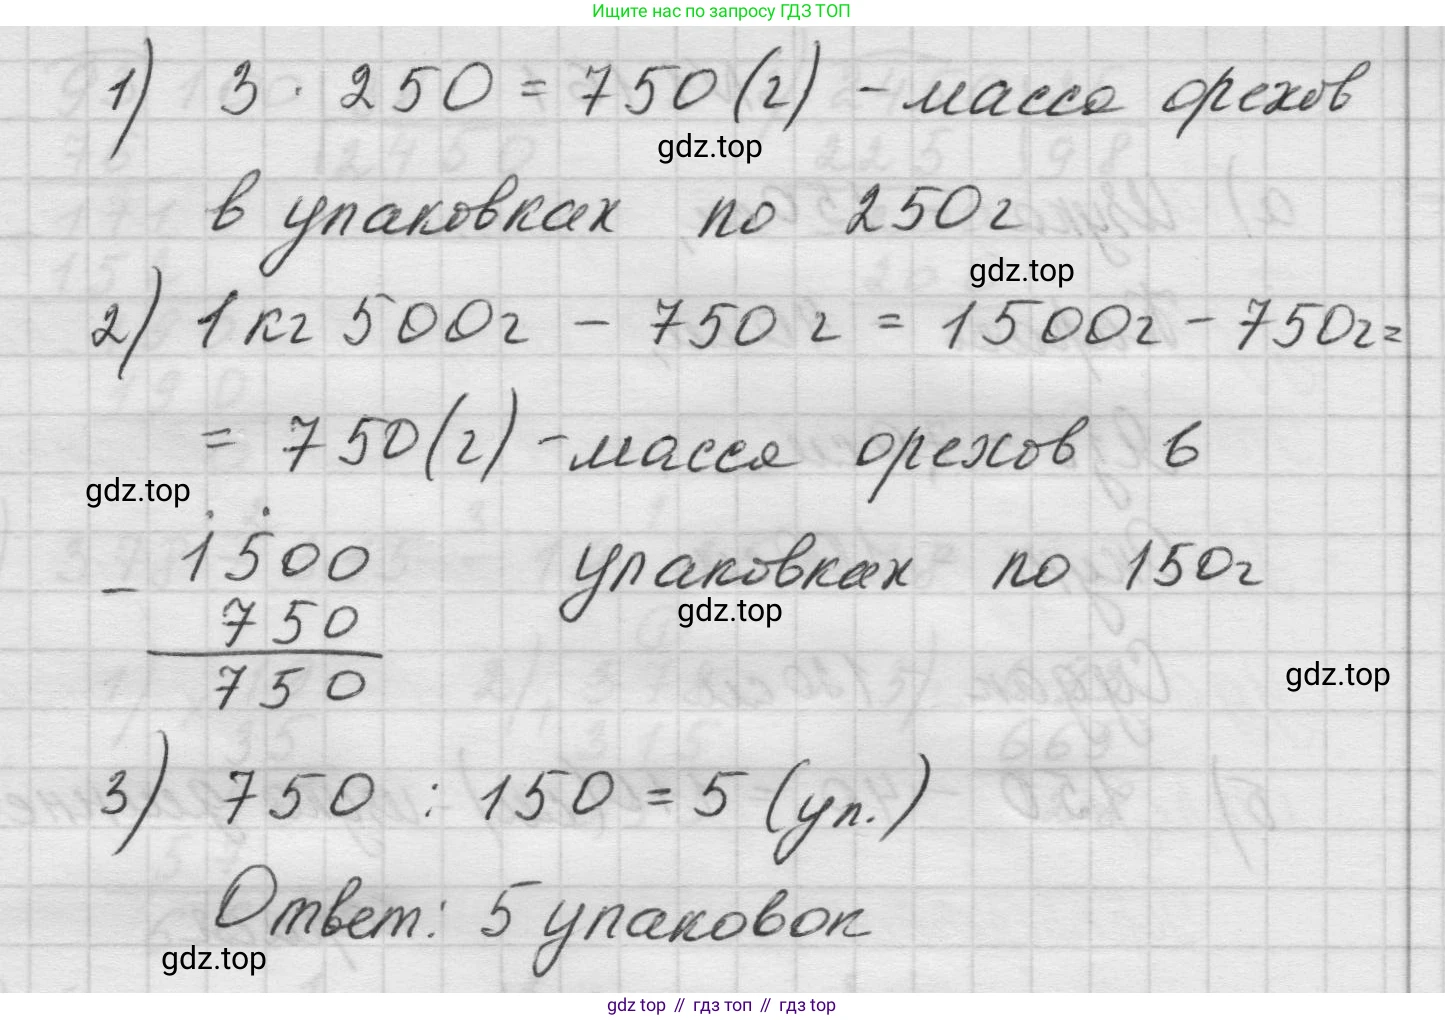 Ищите нас по запросу ГДЗ ТОП
1) 3 · 250 = 750 (г) - масса орехов
gdz.top
в упаковках по 250г
gdz.top
2) 1 кг 500г - 750 г = 1500г - 750г =
= 750 (г) - масса орехов в
gdz.top
1500
упаковках по 150г
-
750
gdz.top
750
gdz.top
3) 750 : 150 = 5 (уп.)
Ответ: 5 упаковок
gdz.top
gdz top // гдз топ // гдз top